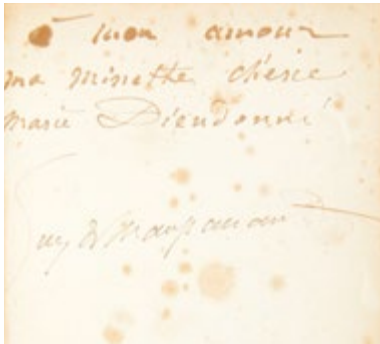 à mon amour
ma minette chérie
Marie Dieudonné
Guy de Maupassant